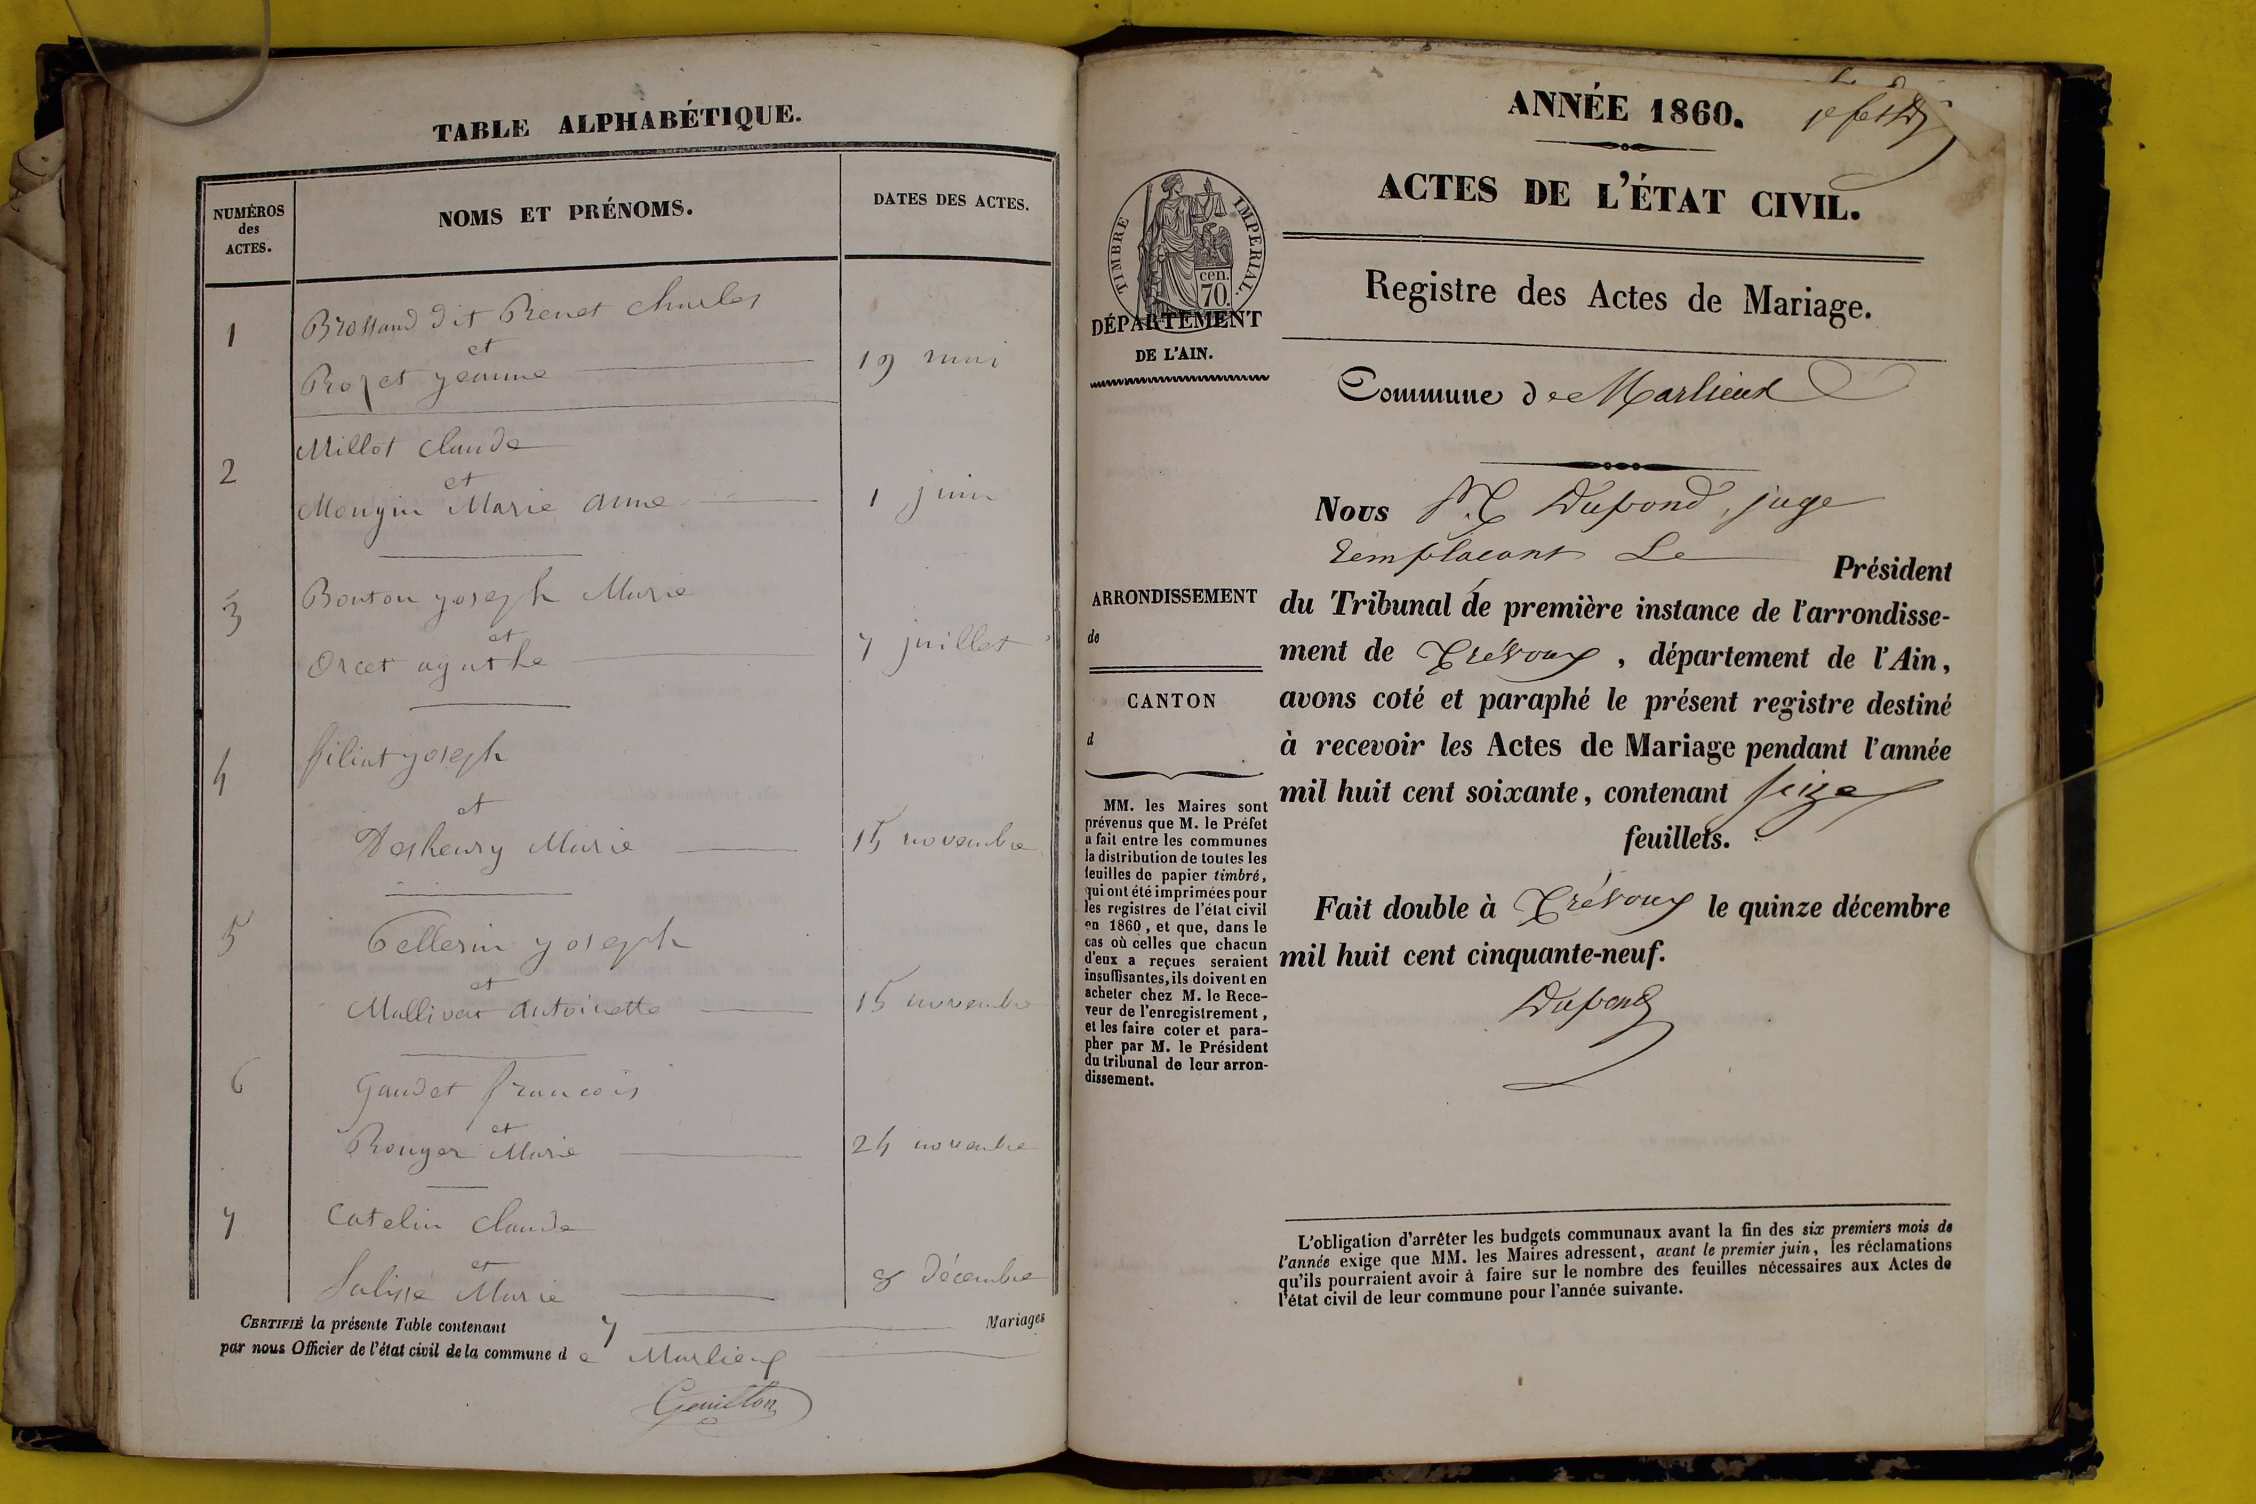 TABLE ALPHABÉTIQUE.
NUMÉROS
des
ACTES.
NOMS ET PRÉNOMS.
DATES DES ACTES.
1
Brossand dit Benet Charles
et
Rozet yeanne
19 mai
2
Millot Claude
et
Mougin Marie Anne
1 juin
3
Bouton yoseph Marie
et
Orcet agathe
7 juillet
4
filiat yoseph
et
Deshenry Marie
15 novembre
5
Pellerin yoseph
et
Mallivar Antoinette
15 novembre
6
Gaudet francois
et
Rouyer Marie
24 novembre
7
Catelin Claude
et
Salisse Marie
8 décembre
CERTIFIÉ la présente Table contenant 7 Mariages
par nous Officier de l'état civil de la commune d e Marlieux
Genillon
ANNÉE 1860.
ACTES DE L'ÉTAT CIVIL.
TIMBRE IMPÉRIAL.
cen.
70.
DÉPARTEMENT
DE L'AIN.
Registre des Actes de Mariage.
Commune de Marlieux
Nous Dupond, juge
remplacant Le Président
du Tribunal de première instance de l'arrondisse-
ment de Trévoux, département de l'Ain,
avons coté et paraphé le présent registre destiné
à recevoir les Actes de Mariage pendant l'année
mil huit cent soixante, contenant seize
feuillets.
Fait double à Trévoux le quinze décembre
mil huit cent cinquante-neuf.
Dupond
ARRONDISSEMENT
de
CANTON
d
MM. les Maires sont
prévenus que M. le Préfet
a fait entre les communes
la distribution de toutes les
feuilles de papier timbré,
qui ont été imprimées pour
les registres de l'état civil
en 1860, et que, dans le
cas où celles que chacun
d'eux a reçues seraient
insuffisantes, ils doivent en
acheter chez M. le Rece-
veur de l'enregistrement,
et les faire coter et para-
pher par M. le Président
du tribunal de leur arron-
dissement.
L'obligation d'arrêter les budgets communaux avant la fin des six premiers mois de
l'année exige que MM. les Maires adressent, avant le premier juin, les réclamations
qu'ils pourraient avoir à faire sur le nombre des feuilles nécessaires aux Actes de
l'état civil de leur commune pour l'année suivante.